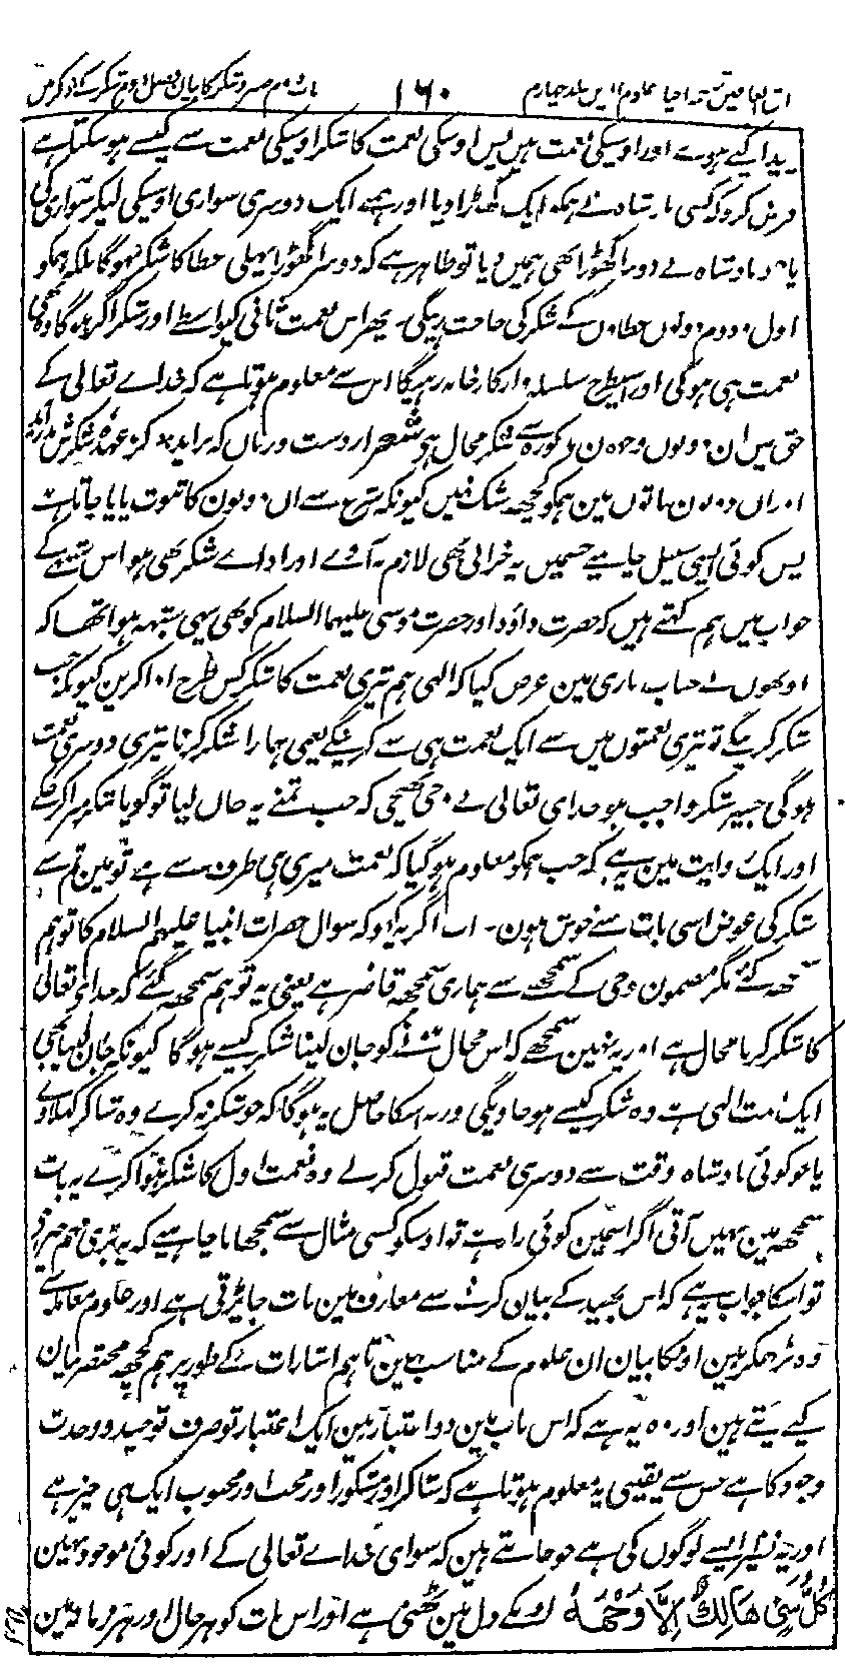 باب دوم صبر و شکر کا بیان فصل دوم شکر کے ذکر میں ۱۶۰ ترجمہ احیاء علوم الدین جلد چہارم
پیدا کیے ہوئے اور اوسیکی نعمت ہیں پس اوسکی نعمت کا شکر اوسیکی نعمت سے کیسے ہو سکتا ہے
فرض کرو کہ کسی بادشاہ نے ہمکو ایک گھوڑا دیا اور ہمنے ایک دوسری سواری اوسیکی لیکر سواری کی
یا بادشاہ نے دوسرا گھوڑا بھی ہمیں دیا تو ظاہر ہے کہ دوسرا گھوڑا پہلی عطا کا شکر نہوگا بلکہ ہمکو
اول و دوم دونوں عطاوں کے شکر کی حاجت رہیگی۔ پھر اس نعمت ثانی کیواسطے اور شکر اگر ہوگا وہ بھی
نعمت ہی ہوگی اور اسیطرح سلسلہ وار کارخانہ رہیگا اس سے معلوم ہوتا ہے کہ خداے تعالی کے
حق میں ان دونوں وجوہ مذکورہ سے شکر محال ہی شعر از دست و زباں کہ براید ٭ کز عہدہ شکرش بدراید
اور ان دونوں باتوں مین ہمکو کچھ شک نہیں کیونکہ شرع سے ان دونون کا ثبوت پایا جاتا ہے
پس کوئی ایسی سبیل چاہیے جسمیں یہ خرابی بھی لازم نہ آوے اور اداے شکر بھی ہو اس شبہے کے
جواب میں ہم کہتے ہیں کہ حضرت داؤد اور حضرت موسی علیہما السلام کو بھی یہی شبہہ ہوا تھا کہ
اونھوں نے جناب باری مین عرض کیا کہ الہی ہم تیری نعمت کا شکر کس طرح ادا کرین کیونکہ جب
شکر کرینگے تو تیری نعمتوں میں سے ایک نعمت ہی سے کرینگے یعنی ہمارا شکر کرنا تیری دوسری نعمت
ہوگی جسپر شکر واجب ہو خدای تعالی نے وحی بھیجی کہ جب تمنے یہ جان لیا تو گویا شکر میرا کر چکے
اور ایک روایت مین یہ ہے کہ جب ہمکو معلوم ہو گیا کہ نعمت میری ہی طرف سے ہے تو مین تم سے
شکر کی عوض اسی بات سے خوش ہون۔ اب اگر یہ کہو کہ سوال حضرات انبیا علیہم السلام کا تو ہم
سمجھ گئے مگر مضمون وحی کے سمجھنے سے ہماری سمجھ قاصر ہے یعنی یہ تو ہم سمجھ گئے کہ خدای تعالی
کا شکر کرنا محال ہے اور یہ نہین سمجھے کہ اس محال ہونے کو جان لینا شکر کیسے ہوگا کیونکہ جان لینا بھی
ایک نعمت الہی ہے وہ شکر کیسے ہو جاویگی ورنہ اسکا حاصل یہ ہوگا کہ جو شکر نہ کرے وہ شاکر کہلاوے
یا جو کوئی بادشاہ وقت سے دوسری نعمت قبول کرلے وہ نعمت اول کا شکر ہوا کرے یہ بات
سمجھ مین نہیں آتی اگر اسمین کوئی راز ہے تو اوسکو کسی مثال سے سمجھانا چاہیے کہ یہ بڑی مہم چیز ہے
تو اسکا جواب یہ ہے کہ اس بھید کے بیان کرنے سے معارف مین بات جا پڑتی ہے اور علوم معاملہ سے
وہ بڑھکر ہین اونکا بیان ان علوم کے مناسب نہین تاہم اشارات کے طور پر ہم کچھ مختصر بیان
کیے دیتے ہین اور وہ یہ ہے کہ اس باب مین دو اعتبار ہین ایک اعتبار تو صرف توحید و وحدت
وجود کا ہے جس سے یقینی یہ معلوم ہوتا ہے کہ شاکر اور مشکور اور محب اور محبوب ایک ہی چیز ہے
اور یہ نظر ایسے لوگوں کی ہے جو جانتے ہین کہ سوای خداے تعالی کے اور کوئی موجود نہین
كُلُّ شَيْءٍ هَالِكٌ إِلَّا وَجْهَهُ اونکے دل مین ٹھنی ہے اور اس بات کو ہر حال اور ہر زمانہ مین